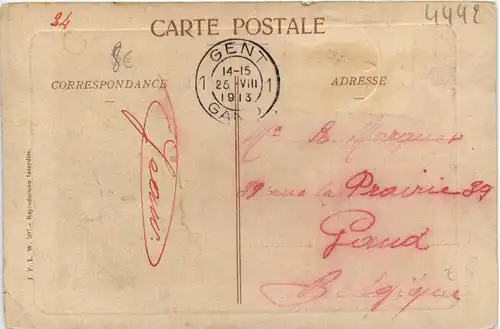 34
4442
8€
CARTE POSTALE
GENT
14-15
1 25 VIII 1
1913
GAND
CORRESPONDANCE
ADRESSE
39 rue la Prairie 39
Gand
Belgique
J. P. L. W. 507. - Reproduction interdite.